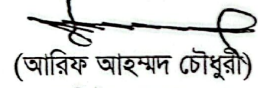 (আরিফ আহম্মদ চৌধুরী)